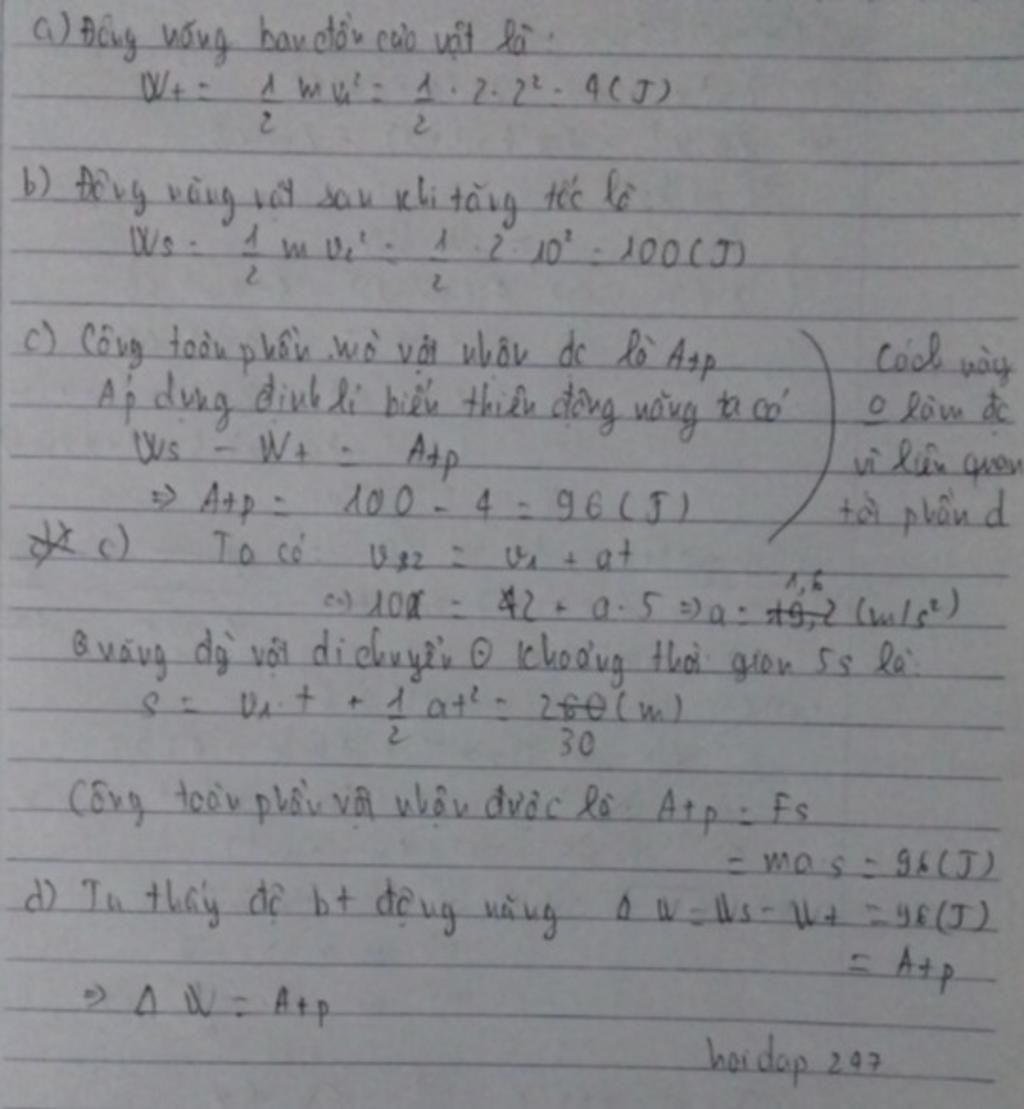 a) Động năng ban đầu của vật là:
Wt = 1/2 mv₁² = 1/2 . 2 . 2² = 4 (J)
b) Động năng vật sau khi tăng tốc là
Ws = 1/2 mv₂² = 1/2 . 2 . 10² = 100 (J)
c) Công toàn phần mà vật nhận đc là Atp
Áp dụng định lí biến thiên động năng ta có
Ws - Wt = Atp
=> Atp = 100 - 4 = 96 (J)
Cách này
0 làm đc
vì liên quan
tới phần d
c) Ta có v₂ = v₁ + at
<=> 10 = 2 + a . 5 => a = 1,6 (m/s²)
Quãng đg vật di chuyển khoảng thời gian 5s là:
s = v₁ . t + 1/2 at² = 30 (m)
Công toàn phần vật nhận được là Atp = Fs
= ma s = 96 (J)
d) Ta thấy độ bt động năng Δ W = Ws - Wt = 96 (J)
= Atp
=> Δ W = Atp
hoidap 247